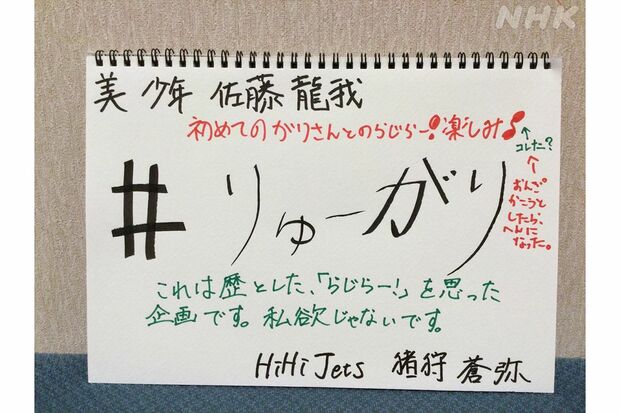 NHK
美 少年 佐藤 龍我
初めてのがりさんとのらじらー!楽しみ♪
↑
コレナニ?
↑
おんぷ
かこうと
したら、
へんに
なった。
#りゅーがり
これは歴とした、「らじらー!」を思った
企画です。私欲じゃないです。
HiHi Jets 猪狩 蒼弥